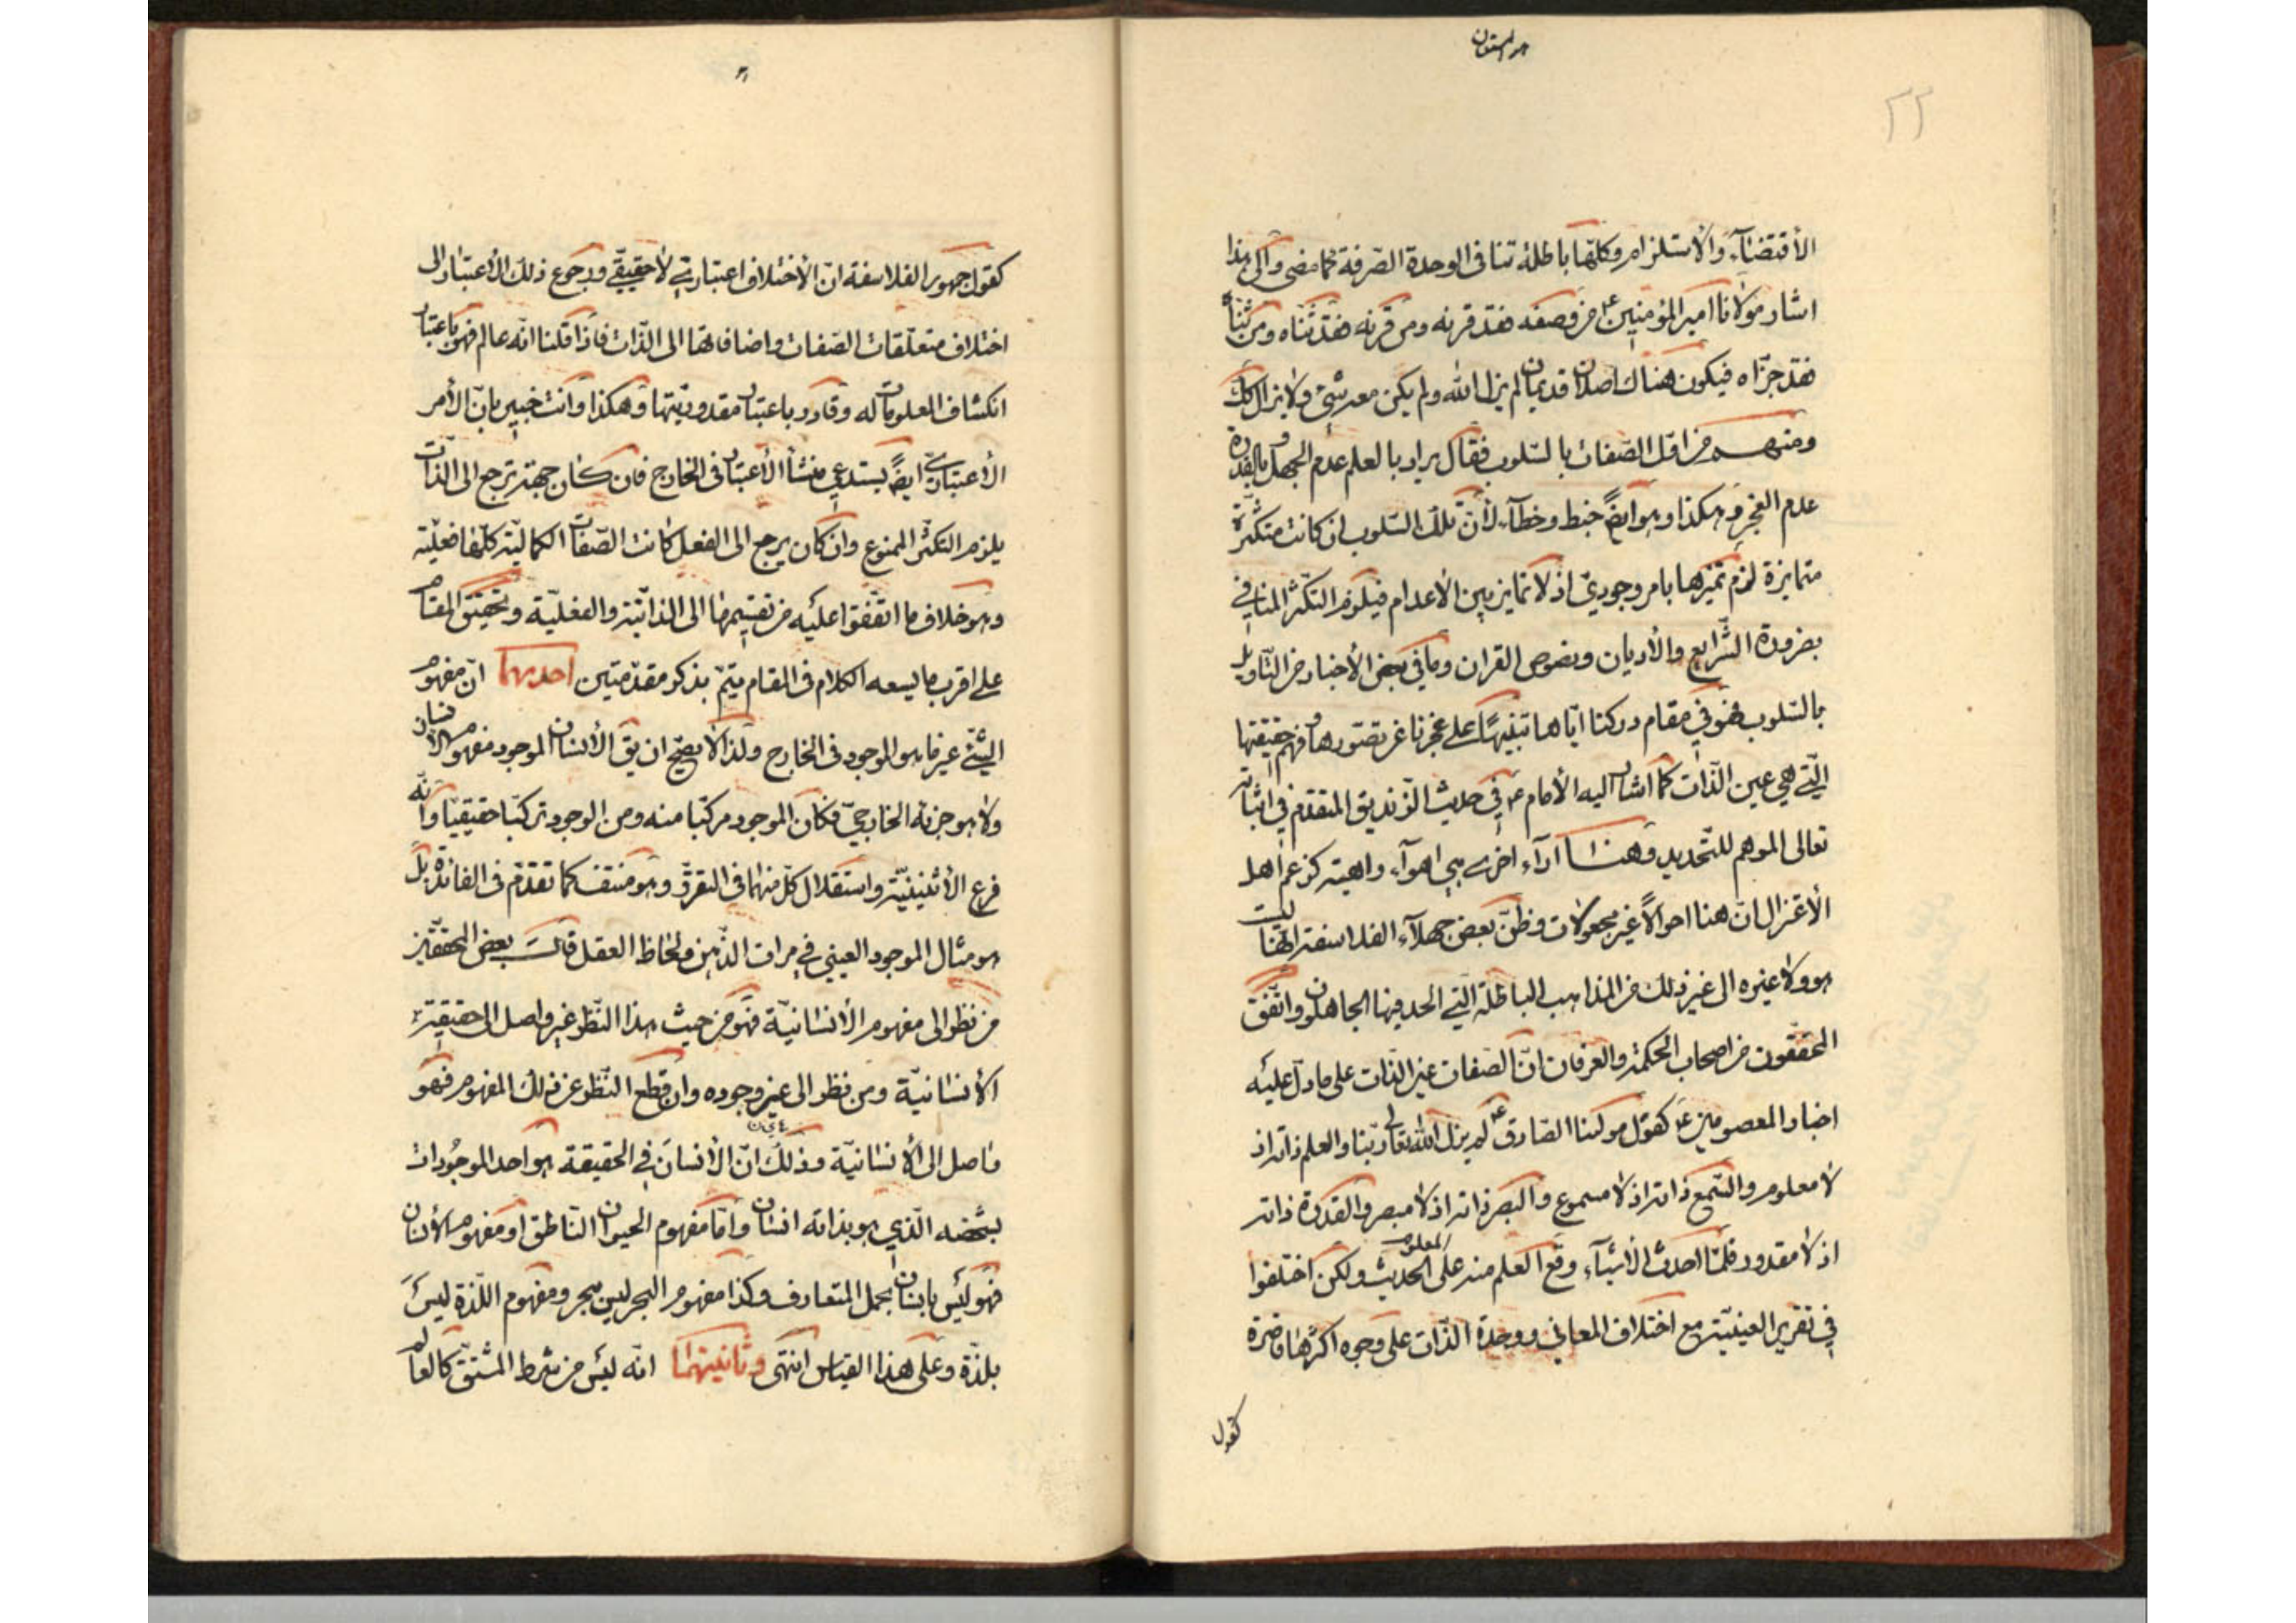 ٢٢
الأقتضاء والأستلزام وكلها باطلة تنافى الوحدة الصرفة كما مضى والى هذا
اشار مولانا امير المؤمنين ع من وصفه فقد قرنه ومن قرنه فقد ثناه ومن ثناه
فقد جزاه فيكون هناك اصلان قديمان لم يزل الله ولم يكن معه شئ ولا يزال كك
ومنهم من اوّل الصفات بالسلوب فقال يراد بالعلم عدم الجهل وبالقدرة
عدم العجز وهكذا وهو ايضً خبط وخطاء لأن تلك السلوب ان كانت متكثرة
متمايزة لزم تميزها بامر وجودى اذ لا تمايز بين الأعدام فيلزم التكثر المنافي
بضرورة الشرايع والأديان ونصوص القران وما في بعض الأخبار من التاويل
بالسلوب فهو في مقام دركنا اياها تنبيهًا على عجزنا عن تصورها وفهم حقيقتها
التي هي عين الذات كما اشار اليه الأمام ع في حديث الزنديق المتقدم في اثباته
تعالى الموهم للتحديد وهنا اراء اخرى هي اهواء واهية كزعم اهل
الأعتزال ان هنا احوالًا غير مجعولات وظن بعض جهلاء الفلاسفة انها ليست
هو ولا غيره الى غير ذلك من المذاهب الباطلة التي الحد فيها الجاهلون واتفق
المحققون من اصحاب الحكمة والعرفان ان الصفات عين الذات على ما دل عليه
اخبار المعصومين ع كقول مولينا الصادق ع لم يزل الله تعالى ربنا والعلم ذاته اذ
لا معلوم والسمع ذاته اذ لا مسموع والبصر ذاته اذ لا مبصر والقدرة ذاته
اذ لا مقدور فلما احدث الأشياء وقع العلم منه على المعلوم الحديث ولكن اختلفوا
في تقرير العينية مع اختلاف المعاني ووحدة الذات على وجوه اكثرها قاصرة
كقول
كقول جمهور الفلاسفة ان الأختلاف اعتبارى لا حقيقي ورجوع ذلك الأعتبار الى
اختلاف متعلقات الصفات واضافاتها الى الذات فاذا قلنا انه عالم فهو باعتبار
انكشاف المعلومات له وقادر باعتبار مقدوريتها وهكذا وانت خبير بان الأمر
الأعتبارى ايضً يستدعي منشأ الأعتبار فى الخارج فان كان جهته ترجع الى الذات
يلزم التكثر الممنوع وان كان يرجع الى الفعل كانت الصفات الكمالية كلها فعلية
وهو خلاف ما اتفقوا عليه من تقسيمها الى الذاتية والفعلية وتحقيق المقام
على اقرب ما يسعه الكلام فى المقام يتم بذكر مقدمتين احديهما ان مفهوم
الشئ غير ما هو الموجود فى الخارج ولذا لا يصح ان يق الأنسان الموجود مفهوم الأنسان
ولا هو جزئه الخارجي فكان الموجود مركبا منه ومن الوجود تركبا حقيقيا وانه
فرع الأثنينية واستقلال كل منهما فى التقرر وهو منتف كما تقدم فى الفائدة بل
هو مثال الموجود العيني في مرات الذهن ولحاظ العقل قال بعض المحققين
من نظر الى مفهوم الأنسانية فهو من حيث هذا النظر غير واصل الى حقيقة
الأنسانية ومن نظر الى عين وجوده وان قطع النظر عن ذلك المفهوم فهو
واصل الى الأنسانية وذلك ان الأنسان في الحقيقة هو احد الموجودات
بشخصه الذي هو بذاته انسان واما مفهوم الحيوان الناطق او مفهوم الأنسان
فهو ليس بانسان بحمل المتعارف وكذا مفهوم البحر ليس ببحر ومفهوم اللذة ليس
بلذة وعلى هذا القياس انتهى وثانيتهما انه ليس من شرط المشتق كالعالم